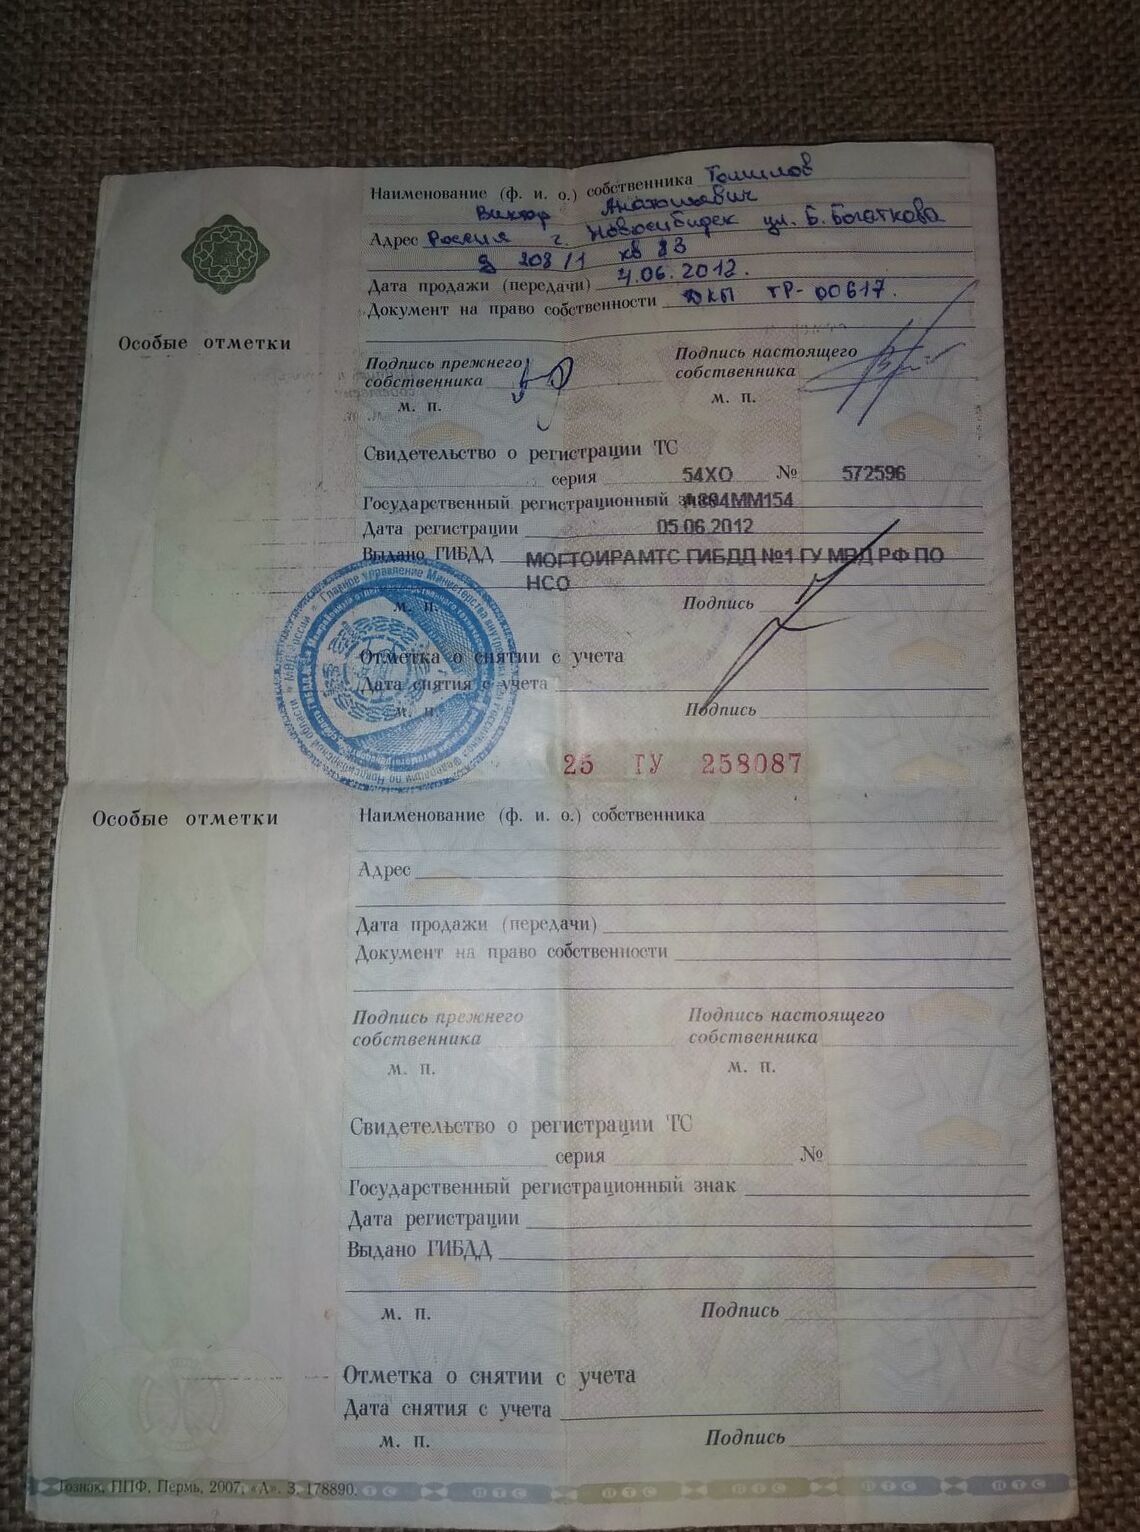 Наименование (ф. и. о.) собственника Томилов
Виктор Анатольевич
Адрес Россия г. Новосибирск ул. Б. Богаткова
д 208/1 кв 83
Дата продажи (передачи) 4.06.2012.
Документ на право собственности ДКП ТР- 00617.
Особые отметки
Подпись прежнего собственника
Подпись настоящего собственника
м. п.
м. п.
Свидетельство о регистрации ТС
серия 54ХО № 572596
Государственный регистрационный ММ154
Дата регистрации 05.06.2012
Выдано ГИБДД МОГТОИРАМТС ГИБДД №1 ГУ МВД РФ ПО
НСО
м. п. Подпись
Отметка о снятии с учета
Дата снятия с учета
м. п. Подпись
25 ГУ 258087
Особые отметки
Наименование (ф. и. о.) собственника
Адрес
Дата продажи (передачи)
Документ на право собственности
Подпись прежнего собственника
Подпись настоящего собственника
м. п.
м. п.
Свидетельство о регистрации ТС
серия №
Государственный регистрационный знак
Дата регистрации
Выдано ГИБДД
м. п. Подпись
Отметка о снятии с учета
Дата снятия с учета
м. п. Подпись
Гознак, ППФ, Пермь, 2007, «А». З. 178890.
ПТС ПТС ПТС ПТС ПТС